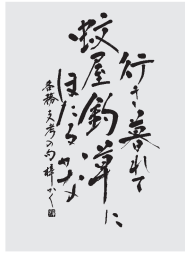 行き暮れて
蚊屋釣草に
ほたるかな
各務支考の句 梓かく